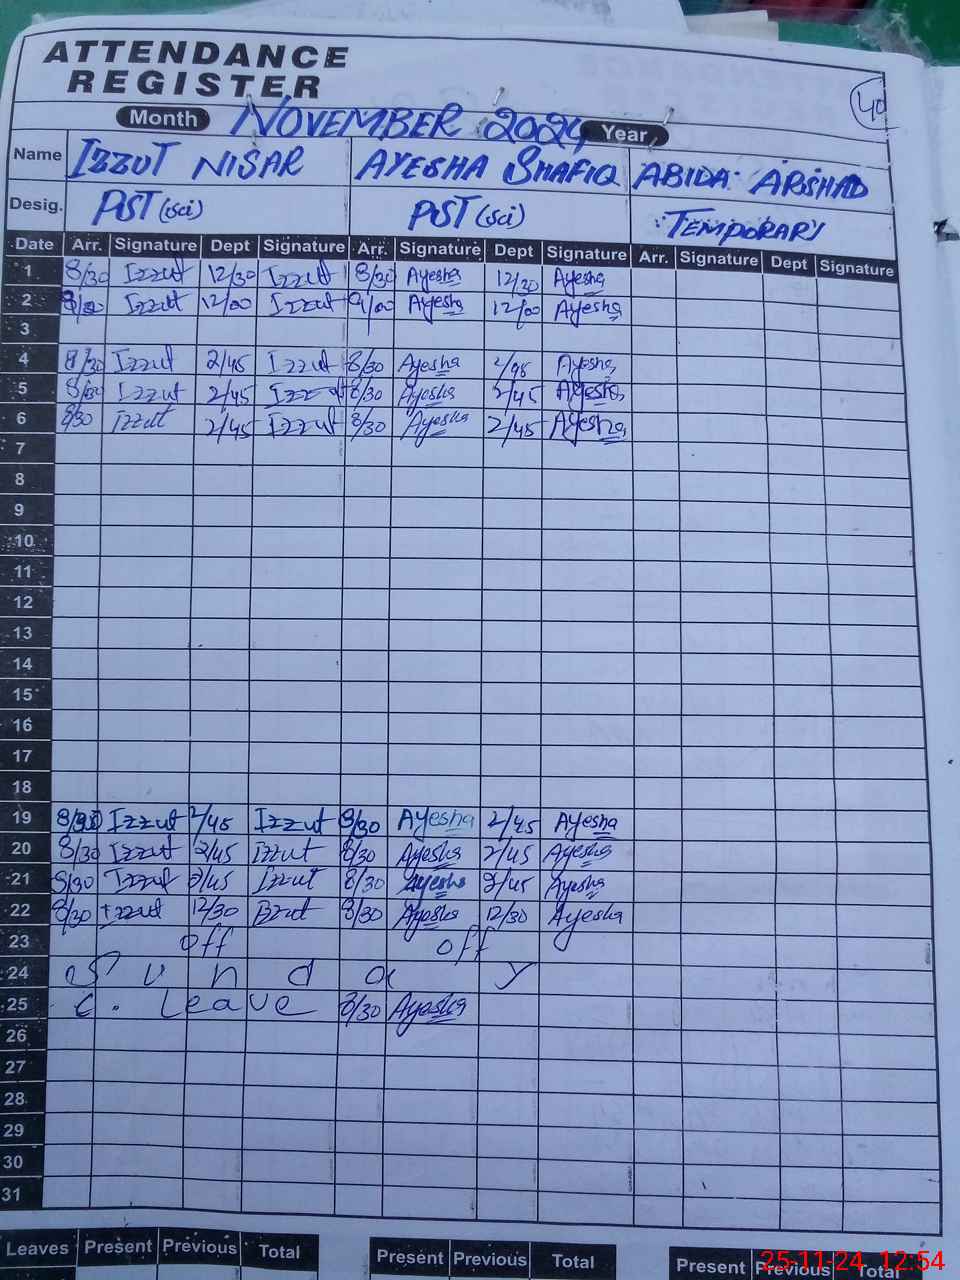 ATTENDANCE
REGISTER
40
Month NOVEMBER 2024 Year
Name IZZUT NISAR AYESHA SHAFIQ ABIDA ARSHAD
Desig. PST (sci) PST (sci) TEMPORARY
Date Arr. Signature Dept Signature Arr. Signature Dept Signature Arr. Signature Dept Signature
1 8/30 Izzut 12/30 Izzut 8/30 Ayesha 12/30 Ayesha
2 Izzut 12/00 Izzut 9/00 Ayesha 12/00 Ayesha
3
4 8/30 Izzut 2/45 Izzut 8/30 Ayesha 2/45 Ayesha
5 8/30 Izzut 2/45 Izzut 8/30 Ayesha 2/45 Ayesha
6 8/30 Izzut 2/45 Izzut 8/30 Ayesha 2/45 Ayesha
7
8
9
10
11
12
13
14
15
16
17
18
19 8/30 Izzut 2/45 Izzut 8/30 Ayesha 2/45 Ayesha
20 8/30 Izzut 2/45 Izzut 8/30 Ayesha 2/45 Ayesha
21 8/30 Izzut 2/45 Izzut 8/30 Ayesha 2/45 Ayesha
22 8/30 Izzut 12/30 Izzut 8/30 Ayesha 12/30 Ayesha
23 off off
24 S u n d a y
25 C. Leave 8/30 Ayesha
26
27
28
29
30
31
Leaves Present Previous Total Present Previous Total Present Previous Total
25-11-24 12:54